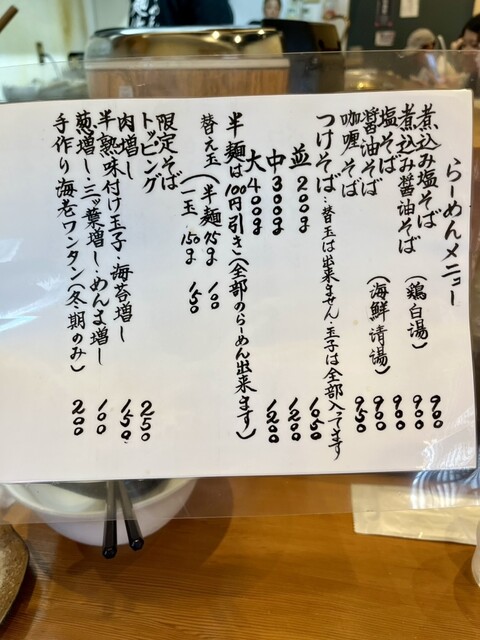 らーめんメニュー
煮込み塩そば 900
煮込み醤油そば (鶏白湯) 900
塩そば 900
醤油そば (海鮮清湯) 900
咖喱そば 950
つけそば・替玉は出来ません・玉子は全部入ってます
並 200g 1050
中 300g 1200
大 400g 1200
半麺は100円引き(全部のらーめん出来ます)
替え玉(半麺75g 100
一玉 150g 150
限定そば
トッピング
肉増し 250
半熟味付け玉子・海苔増し 150
葱増し・三ッ葉増し・めんま増し 100
手作り海老ワンタン(冬期のみ) 200